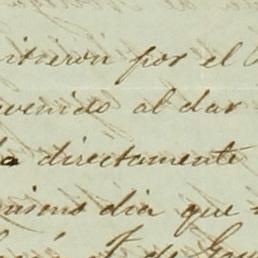 itieron por el
venido al dar
do directamente
mismo dia que
de